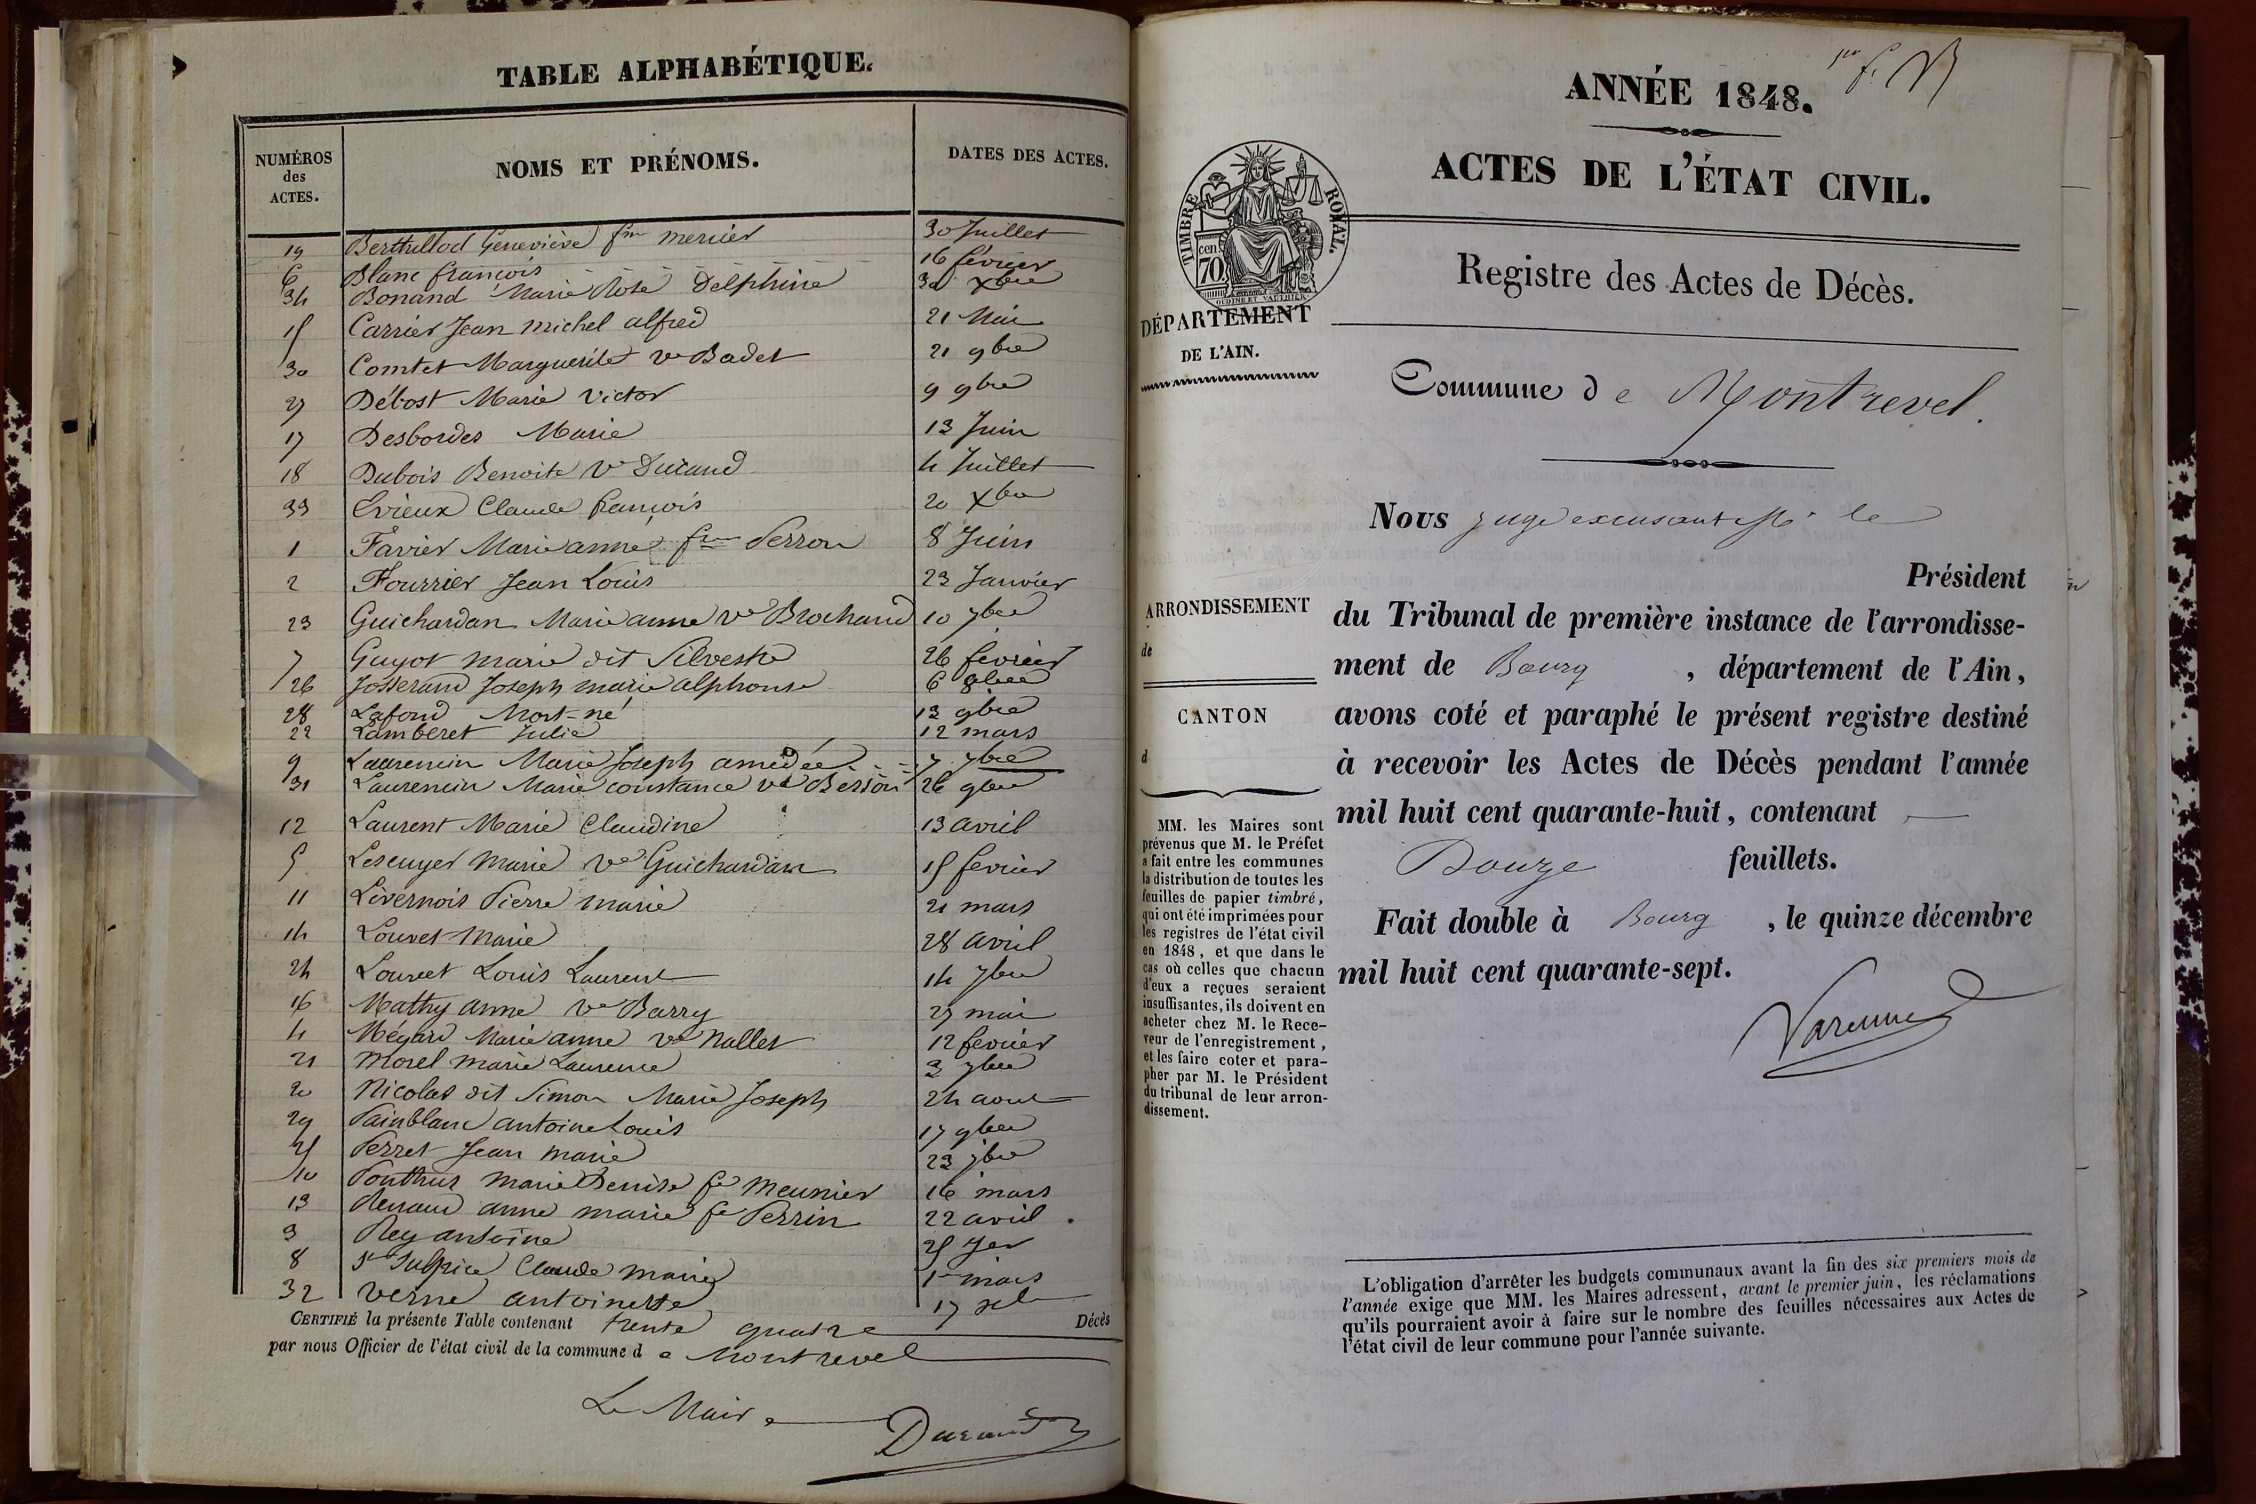 TABLE ALPHABÉTIQUE.
NUMÉROS des ACTES. NOMS ET PRÉNOMS. DATES DES ACTES.
19 Berthillod Geneviève fm mercier 30 Juillet
6 Blanc françois 16 février
34 Bonand Marie Rose Delphine 30 Xbre
15 Carrier Jean michel alfred 21 Mai
30 Comtet Marguerite Ve Badet 21 9bre
27 Débost Marie Victor 9 9bre
17 Desbordes Marie 13 Juin
18 Dubois Benoite Ve Durand 4 Juillet
33 Evieux Claude françois 20 Xbre
1 Favier Marie anne fm Perron 8 Juin
2 Fourrier Jean Louis 23 Janvier
23 Guichardan Marie anne Ve Brochand 10 7bre
7 Guyot marie dit Silvestre 26 février
26 Josserand Joseph marie alphonse 6 8bre
28 Lafond Mort-né 13 9bre
22 Lamberet Julie 12 mars
9 Laurencin Marie Joseph amedée 7 7bre
31 Laurencin Marie constance ve Besson 26 9bre
12 Laurent Marie Claudine 13 avril
5 Lescuyer Marie Ve Guichardan 15 fevrier
11 Livernois Pierre marie 21 mars
14 Louvet Marie 28 avril
24 Louvet Louis Laurent 14 7bre
16 Mathy anne Ve Barry 27 mai
4 Mégard Marie anne Ve Nallet 12 fevrier
21 Morel marie Laurence 3 7bre
20 Nicolas dit Simon Marie Joseph 24 aout
29 Painblanc antoine Louis 17 9bre
25 Perret Jean marie 23 7bre
10 Ponthus Marie Denise fe Meunier 16 mars
13 Renaud anne marie fe Perrin 22 avril
3 Rey antoine 25 Jer
8 St Sulpice Claude marie 1er mars
32 Verne antoinette 17 Xbre
CERTIFIÉ la présente Table contenant trente quatre Décès
par nous Officier de l'état civil de la commune d e Montrevel
Le Maire
Durand
1er f. V
ANNÉE 1848.
ACTES DE L'ÉTAT CIVIL.
TIMBRE ROYAL.
cen 70
OUDINE ET VAUTHIER
Registre des Actes de Décès.
DÉPARTEMENT
DE L'AIN.
Commune d e Montrevel.
Nous juge excusant Mr le
Président
ARRONDISSEMENT
de
CANTON
d
du Tribunal de première instance de l'arrondisse-
ment de Bourg , département de l'Ain,
avons coté et paraphé le présent registre destiné
à recevoir les Actes de Décès pendant l'année
mil huit cent quarante-huit, contenant
Douze feuillets.
Fait double à Bourg , le quinze décembre
mil huit cent quarante-sept.
Varenne
MM. les Maires sont
prévenus que M. le Préfet
a fait entre les communes
la distribution de toutes les
feuilles de papier timbré,
qui ont été imprimées pour
les registres de l'état civil
en 1848, et que dans le
cas où celles que chacun
d'eux a reçues seraient
insuffisantes, ils doivent en
acheter chez M. le Rece-
veur de l'enregistrement,
et les faire coter et para-
pher par M. le Président
du tribunal de leur arron-
dissement.
L'obligation d'arrêter les budgets communaux avant la fin des six premiers mois de
l'année exige que MM. les Maires adressent, avant le premier juin, les réclamations
qu'ils pourraient avoir à faire sur le nombre des feuilles nécessaires aux Actes de
l'état civil de leur commune pour l'année suivante.